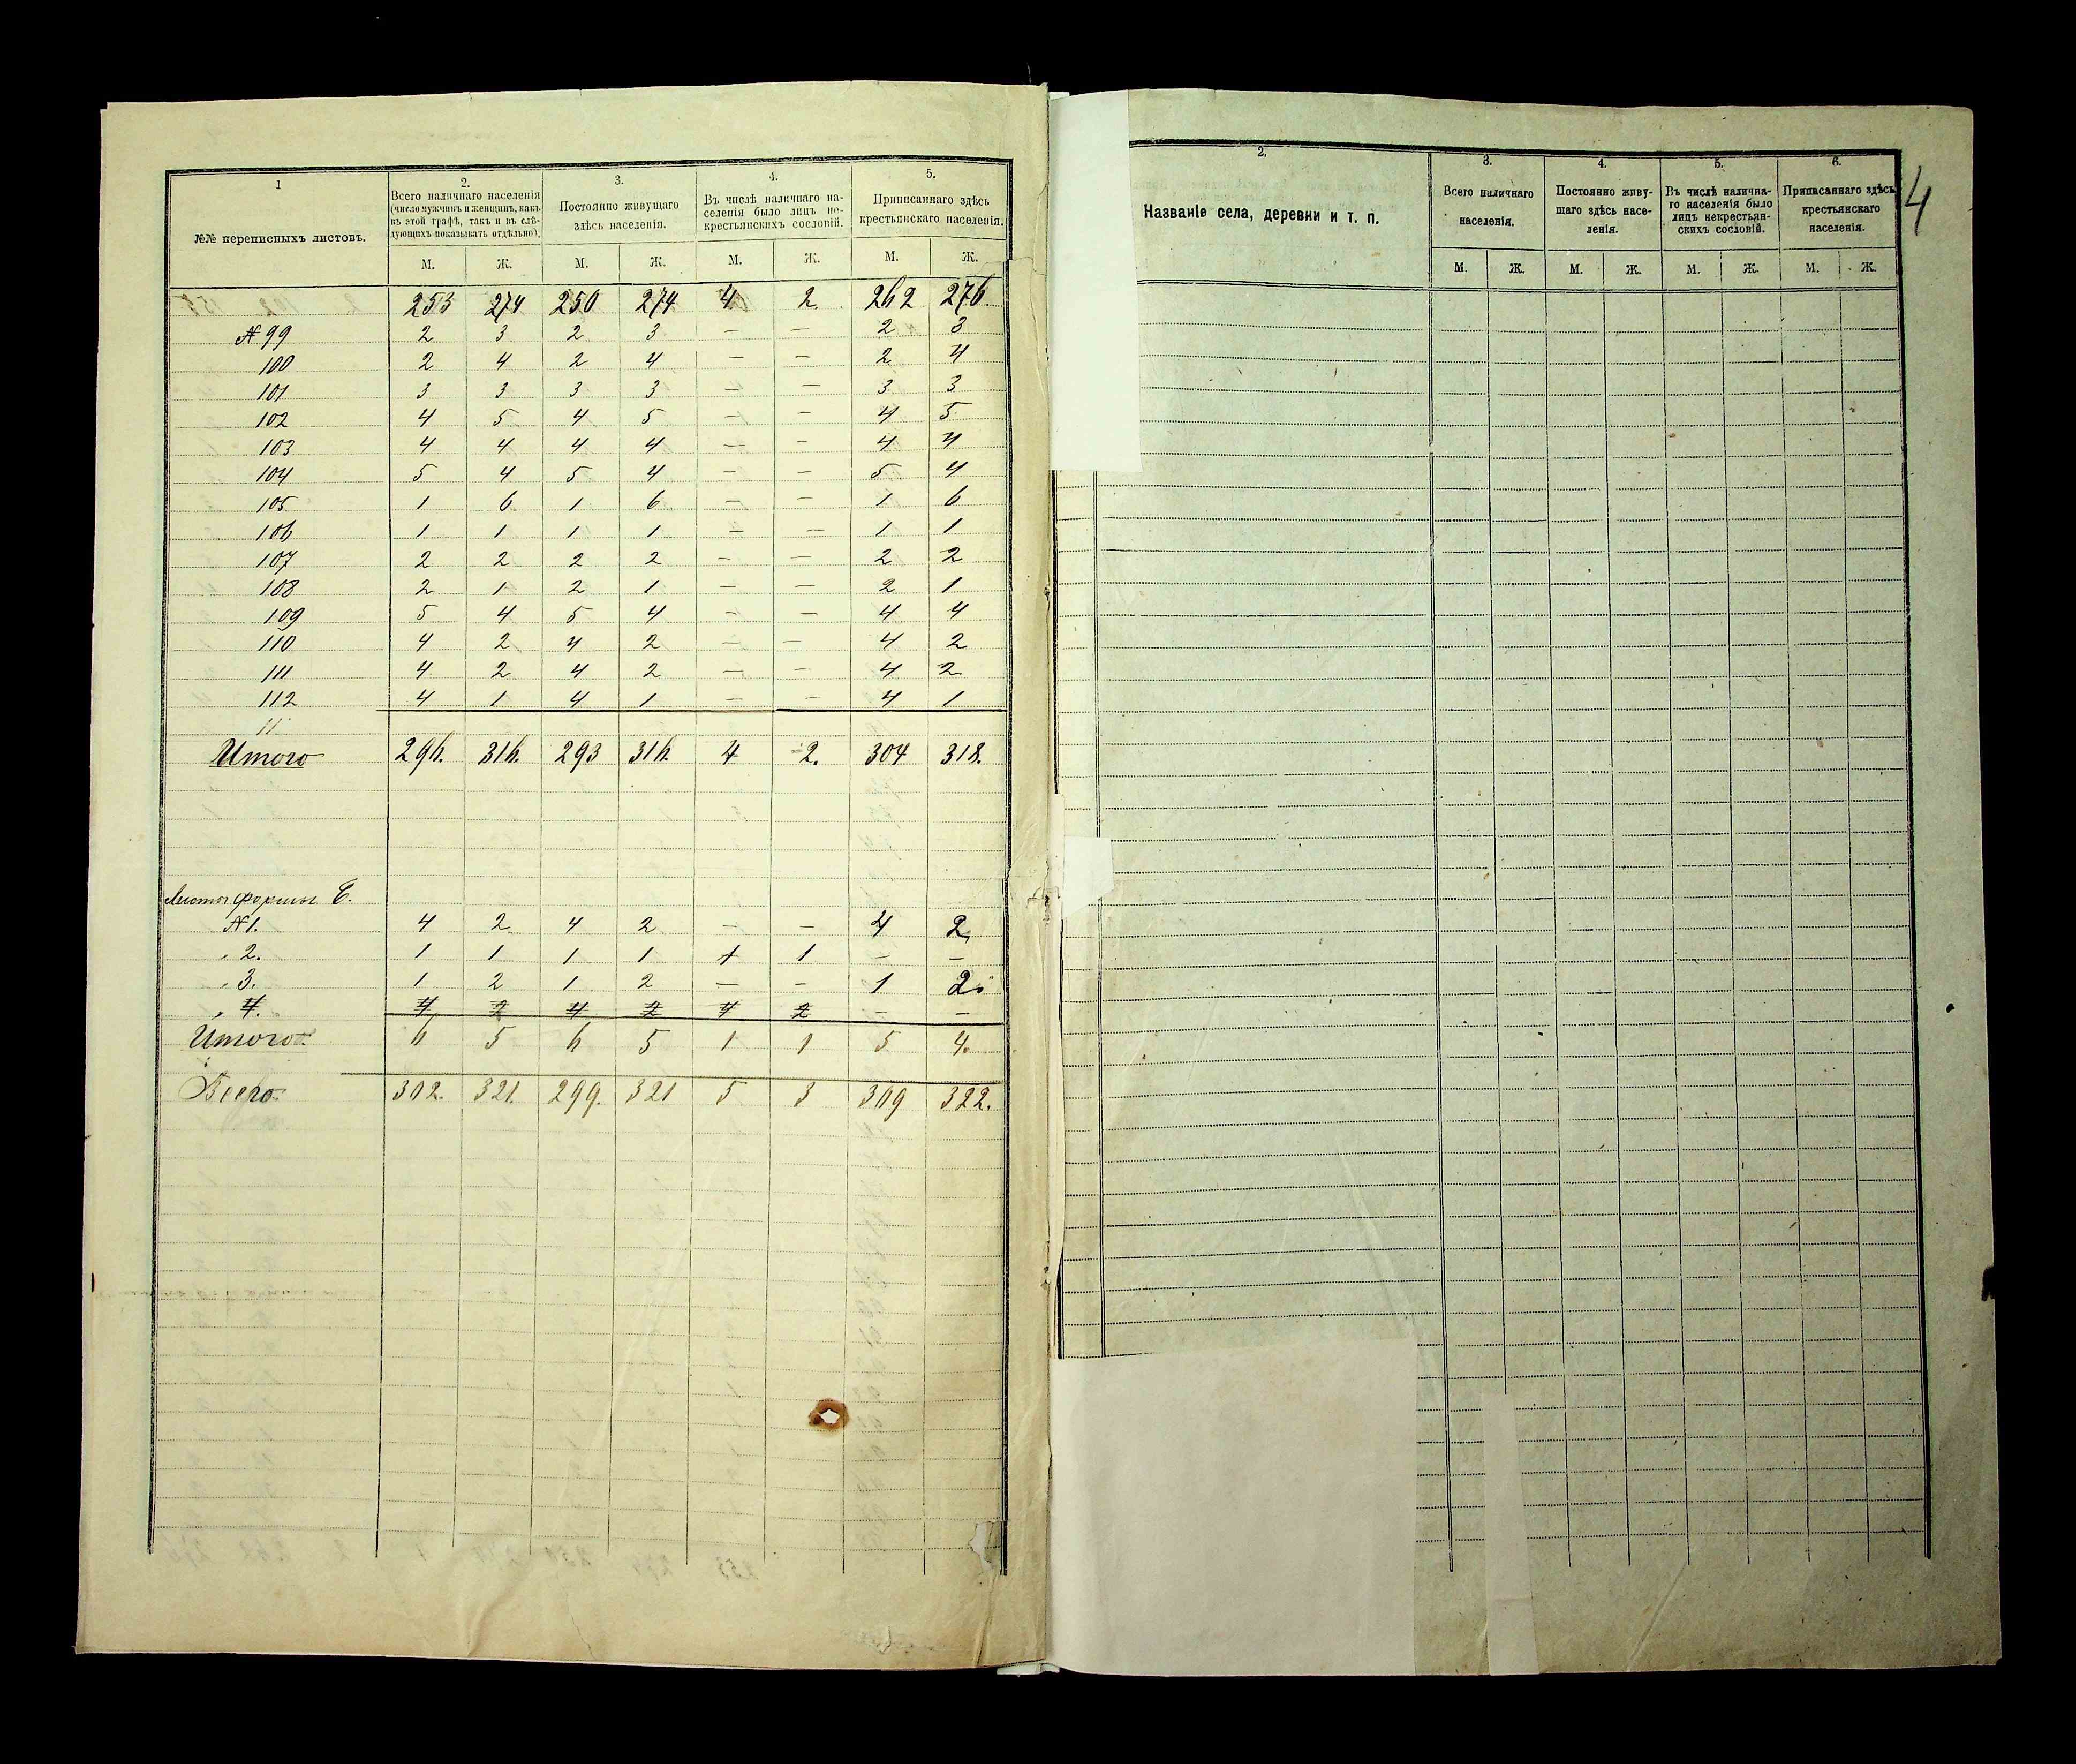 1 2. 3. 4. 5.
№№ переписныхъ листовъ.
Всего наличнаго населенія
(число мужчинъ и женщинъ, какъ
въ этой графѣ, такъ и въ слѣ-
дующихъ показывать отдѣльно).
Постоянно живущаго
здѣсь населенія.
Въ числѣ наличнаго на-
селенія было лицъ не-
крестьянскихъ сословій.
Приписаннаго здѣсь
крестьянскаго населенія.
М. Ж. М. Ж. М. Ж. М. Ж.
253 274 250 274 4 2. 262 276
№ 99 2 3 2 3 — — 2 3
100 2 4 2 4 — — 2 4
101 3 3 3 3 — — 3 3
102 4 5 4 5 — — 4 5
103 4 4 4 4 — — 4 4
104 5 4 5 4 — — 5 4
105 1 6 1 6 — — 1 6
106 1 1 1 1 — — 1 1
107 2 2 2 2 — — 2 2
108 2 1 2 1 — — 2 1
109 5 4 5 4 — — 4 4
110 4 2 4 2 — — 4 2
111 4 2 4 2 — — 4 2
112 4 1 4 1 — — 4 1
11
Итого 296. 316. 293 316. 4 2. 304 318.
Листы формы Б.
№ 1. 4 2 4 2 — — 4 2
„ 2. 1 1 1 1 1 1 — —
„ 3. 1 2 1 2 — — 1 2
„ 4. 4 2 4 2 4 2 — —
Итого 6 5 6 5 1 1 5 4.
Всего 302. 321. 299. 321 5 3 309 322.
4
2. 3. 4. 5. 6.
Названіе села, деревни и т. п.
Всего наличнаго
населенія.
Постоянно живу-
щаго здѣсь насе-
ленія.
Въ числѣ налична-
го населенія было
лицъ некрестьян-
скихъ сословій.
Приписаннаго здѣсь
крестьянскаго
населенія.
М. Ж. М. Ж. М. Ж. М. Ж.